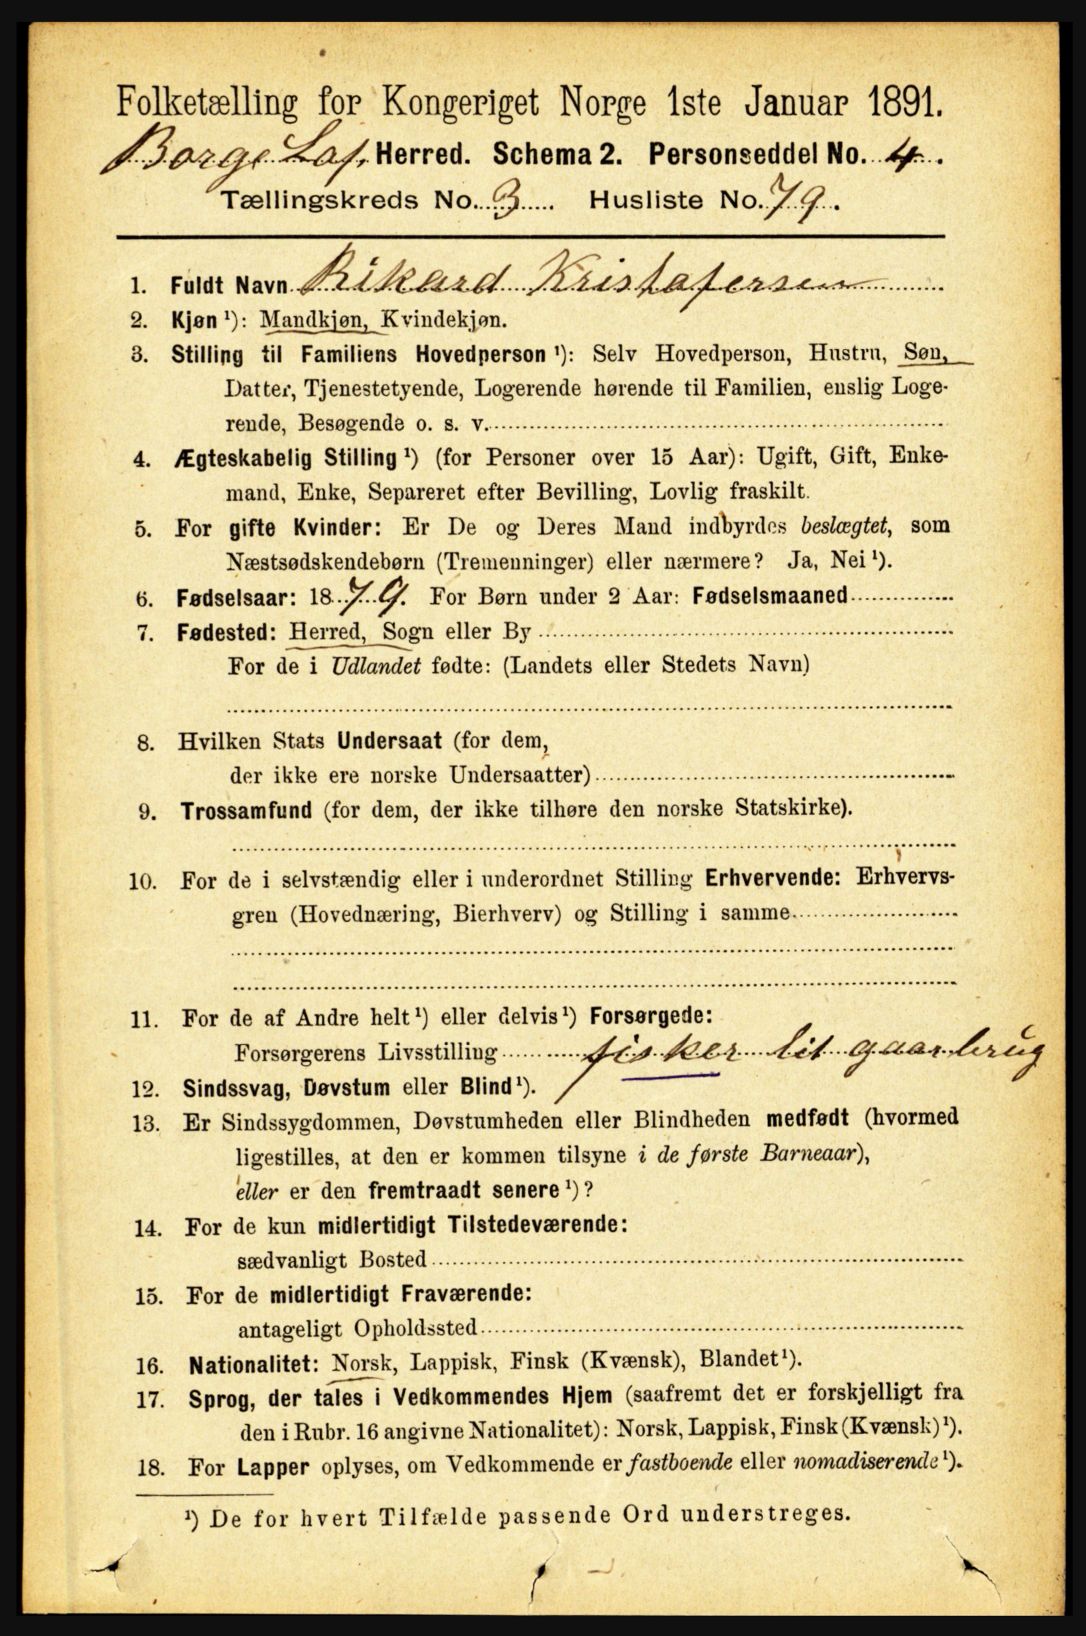 Folketælling for Kongeriget Norge 1ste Januar 1891.
Borge Lof. Herred. Schema 2. Personseddel No. 4.
Tællingskreds No. 3. Husliste No. 79.
1. Fuldt Navn Rikard Kristofersen
2. Kjøn ¹): Mandkjøn, Kvindekjøn.
3. Stilling til Familiens Hovedperson ¹): Selv Hovedperson, Hustru, Søn,
Datter, Tjenestetyende, Logerende hørende til Familien, enslig Loge-
rende, Besøgende o. s. v.
4. Ægteskabelig Stilling ¹) (for Personer over 15 Aar): Ugift, Gift, Enke-
mand, Enke, Separeret efter Bevilling, Lovlig fraskilt.
5. For gifte Kvinder: Er De og Deres Mand indbyrdes beslægtet, som
Næstsødskendebørn (Tremenninger) eller nærmere? Ja, Nei ¹).
6. Fødselsaar: 1879. For Børn under 2 Aar: Fødselsmaaned
7. Fødested: Herred, Sogn eller By
For de i Udlandet fødte: (Landets eller Stedets Navn)
8. Hvilken Stats Undersaat (for dem,
der ikke ere norske Undersaatter)
9. Trossamfund (for dem, der ikke tilhøre den norske Statskirke).
10. For de i selvstændig eller i underordnet Stilling Erhvervende: Erhvervs-
gren (Hovednæring, Bierhverv) og Stilling i samme
11. For de af Andre helt ¹) eller delvis ¹) Forsørgede:
Forsørgerens Livsstilling fisker lit gaarbrug
12. Sindssvag, Døvstum eller Blind ¹).
13. Er Sindssygdommen, Døvstumheden eller Blindheden medfødt (hvormed
ligestilles, at den er kommen tilsyne i de første Barneaar),
eller er den fremtraadt senere ¹)?
14. For de kun midlertidigt Tilstedeværende:
sædvanligt Bosted
15. For de midlertidigt Fraværende:
antageligt Opholdssted
16. Nationalitet: Norsk, Lappisk, Finsk (Kvænsk), Blandet ¹).
17. Sprog, der tales i Vedkommendes Hjem (saafremt det er forskjelligt fra
den i Rubr. 16 angivne Nationalitet): Norsk, Lappisk, Finsk (Kvænsk) ¹).
18. For Lapper oplyses, om Vedkommende er fastboende eller nomadiserende ¹).
¹) De for hvert Tilfælde passende Ord understreges.